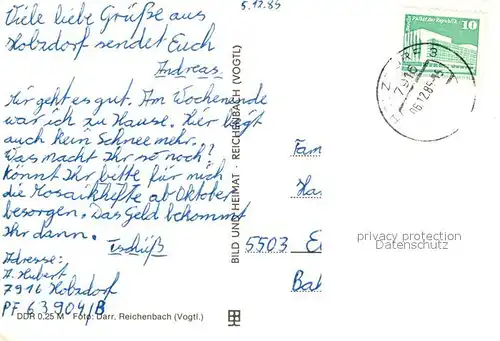 5.12.85
Viele liebe Grüße aus
Holzdorf sendet Euch
Andreas.
Mir geht es gut. Am Wochenende
war ich zu Hause. Hier liegt
auch kein Schnee mehr.
Was macht Ihr so noch?
Könnt Ihr bitte für mich
die Mosaikhefte ab Oktober
besorgen. Das Geld bekommt
Ihr dann.
Tschüß
Adresse:
A. Hubert
7916 Holzdorf
PF 63904/B
DDR 0,25 M Foto: Darr, Reichenbach (Vogtl.)
BILD UND HEIMAT · REICHENBACH (VOGTL)
Palast der Republik
10
7916
06.12.85
Fam
Ha
5503 E
Ba
privacy protection
Datenschutz